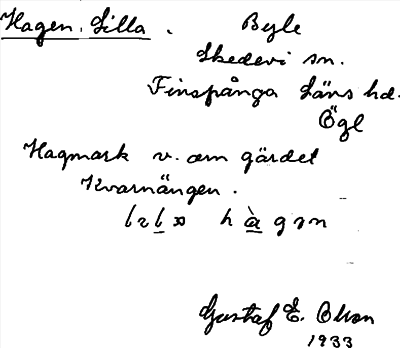 Hagen, Lilla.
Byle
Skedevi sn.
Finspånga läns hd.
Ögl
Hagmark v. om gärdet
Kvarnängen.
Gustaf E. Olson
1933